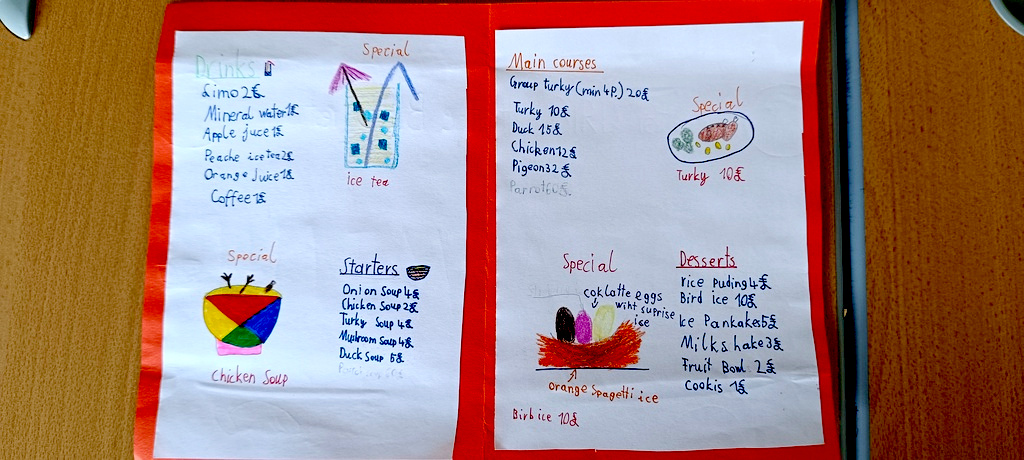 Drinks
Limo 2£
Mineral water 1£
Apple juce 1£
Peache ice tea 2£
Orange Juice 1£
Coffee 1£
Special
ice tea
Special
Chicken Soup
Starters
Onion Soup 4£
Chicken Soup 2£
Turky Soup 4£
Mushroom Soup 4£
Duck Soup 5£
Main courses
Group turky (min 4P.) 20£
Turky 10£
Duck 15£
Chicken 12£
Pigeon 32£
Parrot 60£
Special
Turky 10£
Special
coklatte eggs
wiht suprise
ice
orange Spagetti ice
Birb ice 10£
Desserts
rice puding 4£
Bird ice 10£
Ice Pankakes 5£
Milkshake 3£
Fruit Bowl 2£
Cookis 1£